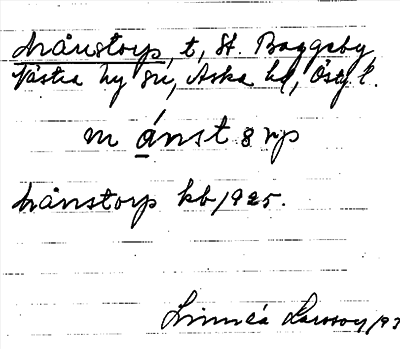 Månstorp, t, St. Baggeby
Västra Ny sn, Aska hd, Östg. l.
m ånst 8 rp
Månstorp kb 1925.
Linnéa Larsson 193